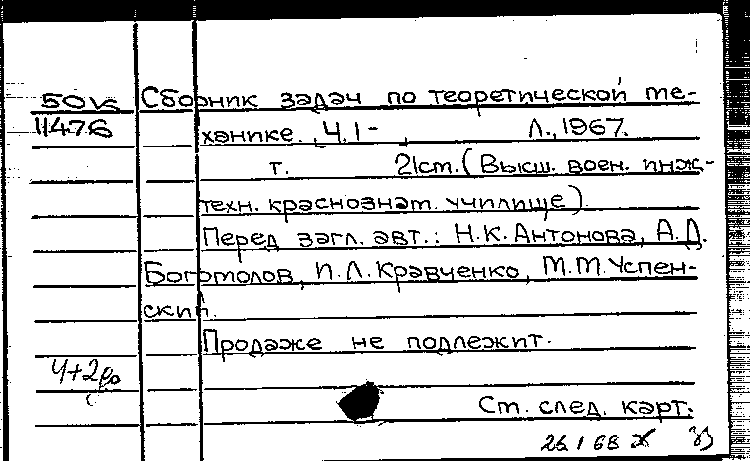 50К Сборник задач по теоретической ме-
11476 ханике. Ч.1- , Л., 1967.
т. 21см. (Высш. воен. инж-
техн. краснознам. училище).
Перед загл. авт.: Н.К. Антонова, А.Д.
Богомолов, П.Л. Кравченко, М.М. Успен-
ский.
Продаже не подлежит.
См. след. карт.
26 1 68